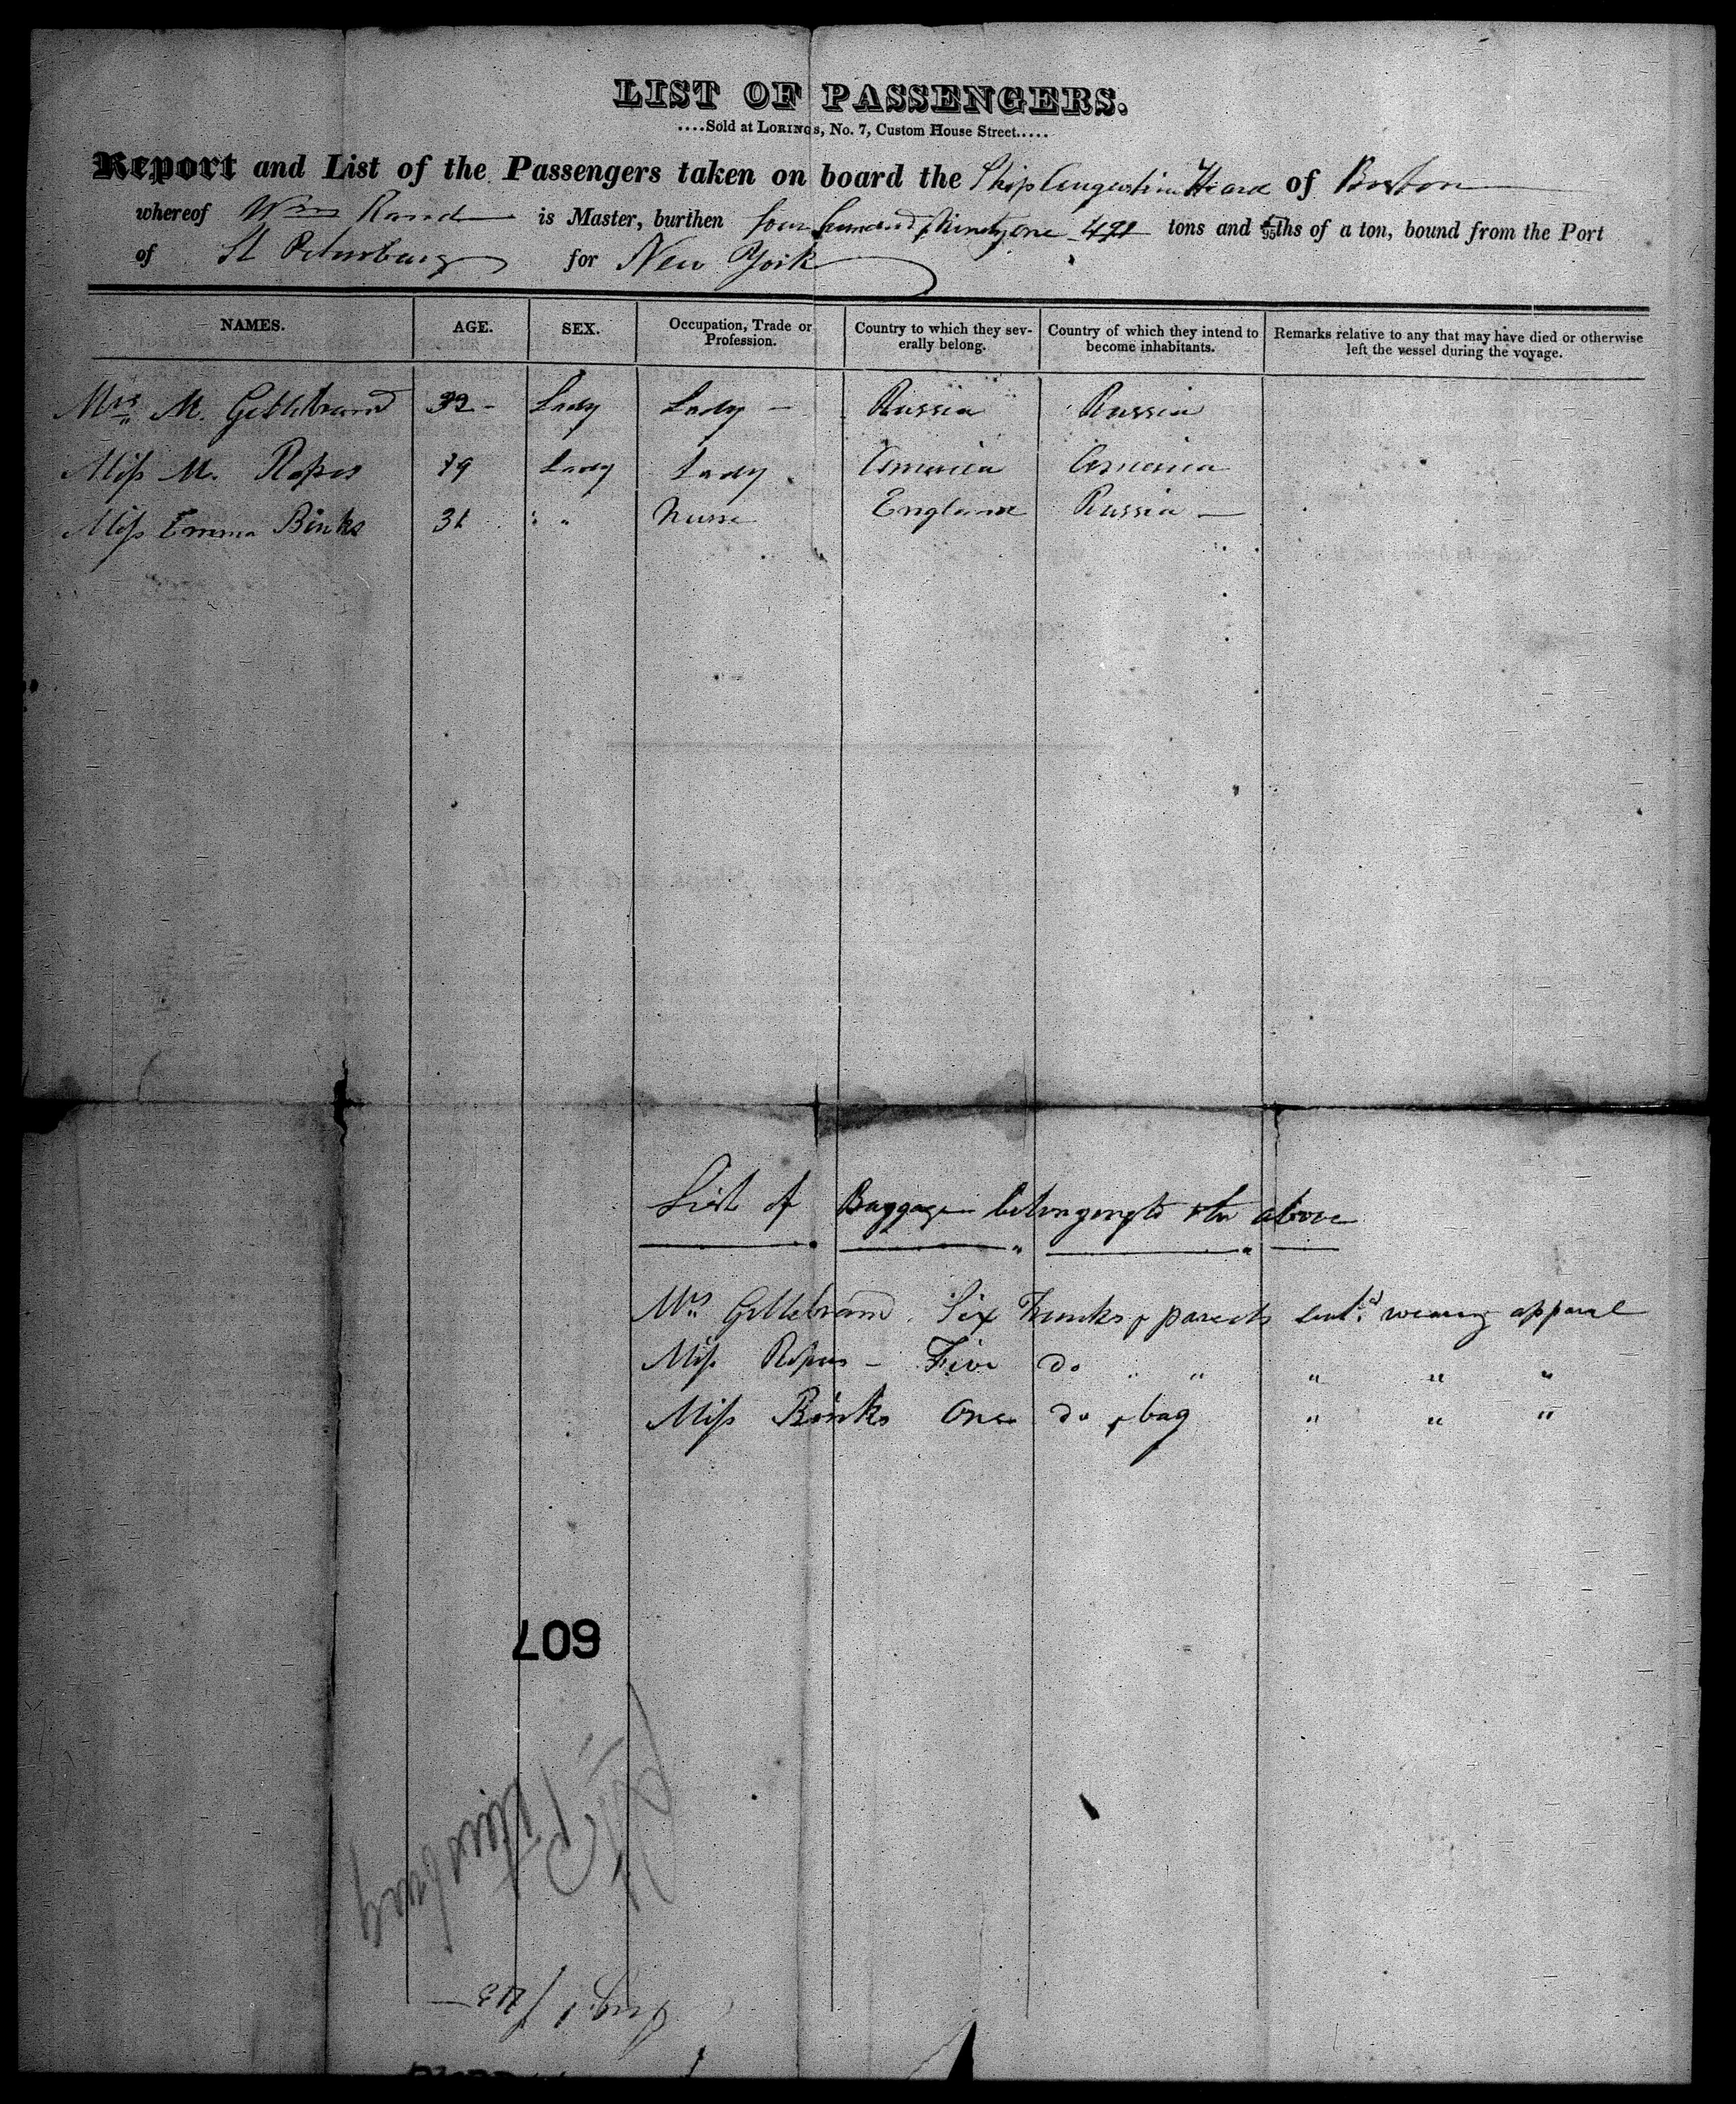 LIST OF PASSENGERS.
....Sold at LORINGS, No. 7, Custom House Street.....
Report and List of the Passengers taken on board the Ship Augustine Heard of Boston
whereof Wm Rand is Master, burthen four hundred ninety one 491 tons and /95ths of a ton, bound from the Port
of St Petersburg for New York
NAMES. AGE. SEX. Occupation, Trade or Profession. Country to which they severally belong. Country of which they intend to become inhabitants. Remarks relative to any that may have died or otherwise left the vessel during the voyage.
Mrs M. Gellebrand 32 - Lady Lady - Russia Russia
Miss M. Ropes 19 Lady Lady America America
Miss Emma Binks 31 " Nurse England Russia —
List of Baggage belonging to the above
Mrs Gellebrand Six Trunks & parcels wearing apparel
Miss Ropes - Five do " " " " "
Miss Binks One do & bag " " "
607
St Petersburg
Aug. 1 /43